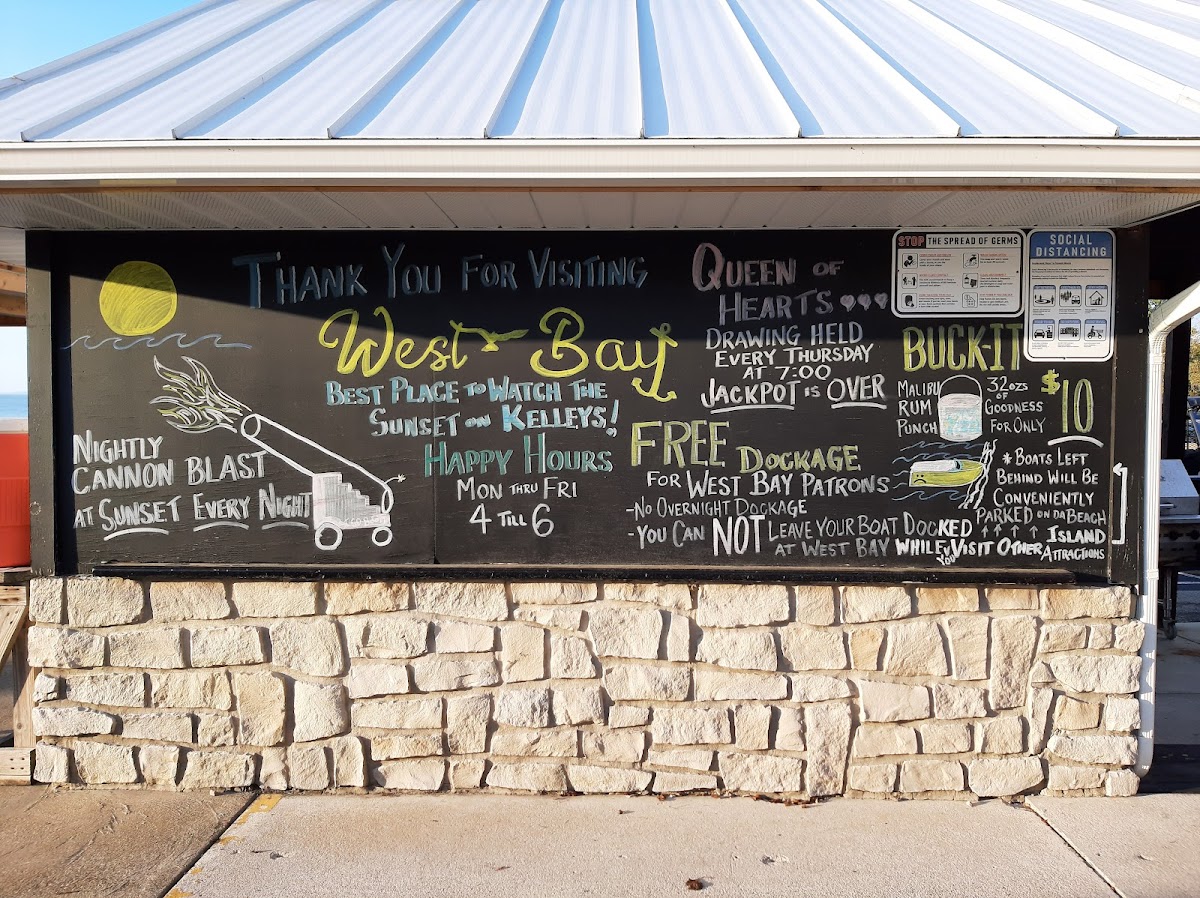 THANK YOU FOR VISITING
West Bay
BEST PLACE TO WATCH THE
SUNSET ON KELLEYS!
HAPPY HOURS
MON THRU FRI
4 TILL 6
NIGHTLY
CANNON BLAST
AT SUNSET EVERY NIGHT
QUEEN OF
HEARTS
DRAWING HELD
EVERY THURSDAY
AT 7:00
JACKPOT IS OVER
FREE DOCKAGE
FOR WEST BAY PATRONS
-NO OVERNIGHT DOCKAGE
-YOU CAN NOT LEAVE YOUR BOAT DOCKED
AT WEST BAY WHILE YOU VISIT OTHER ISLAND
ATTRACTIONS
STOP THE SPREAD OF GERMS
SOCIAL
DISTANCING
BUCK-IT
MALIBU
RUM
PUNCH
32OZS
OF
GOODNESS
FOR ONLY
$10
* BOATS LEFT
BEHIND WILL BE
CONVENIENTLY
PARKED ON DA BEACH